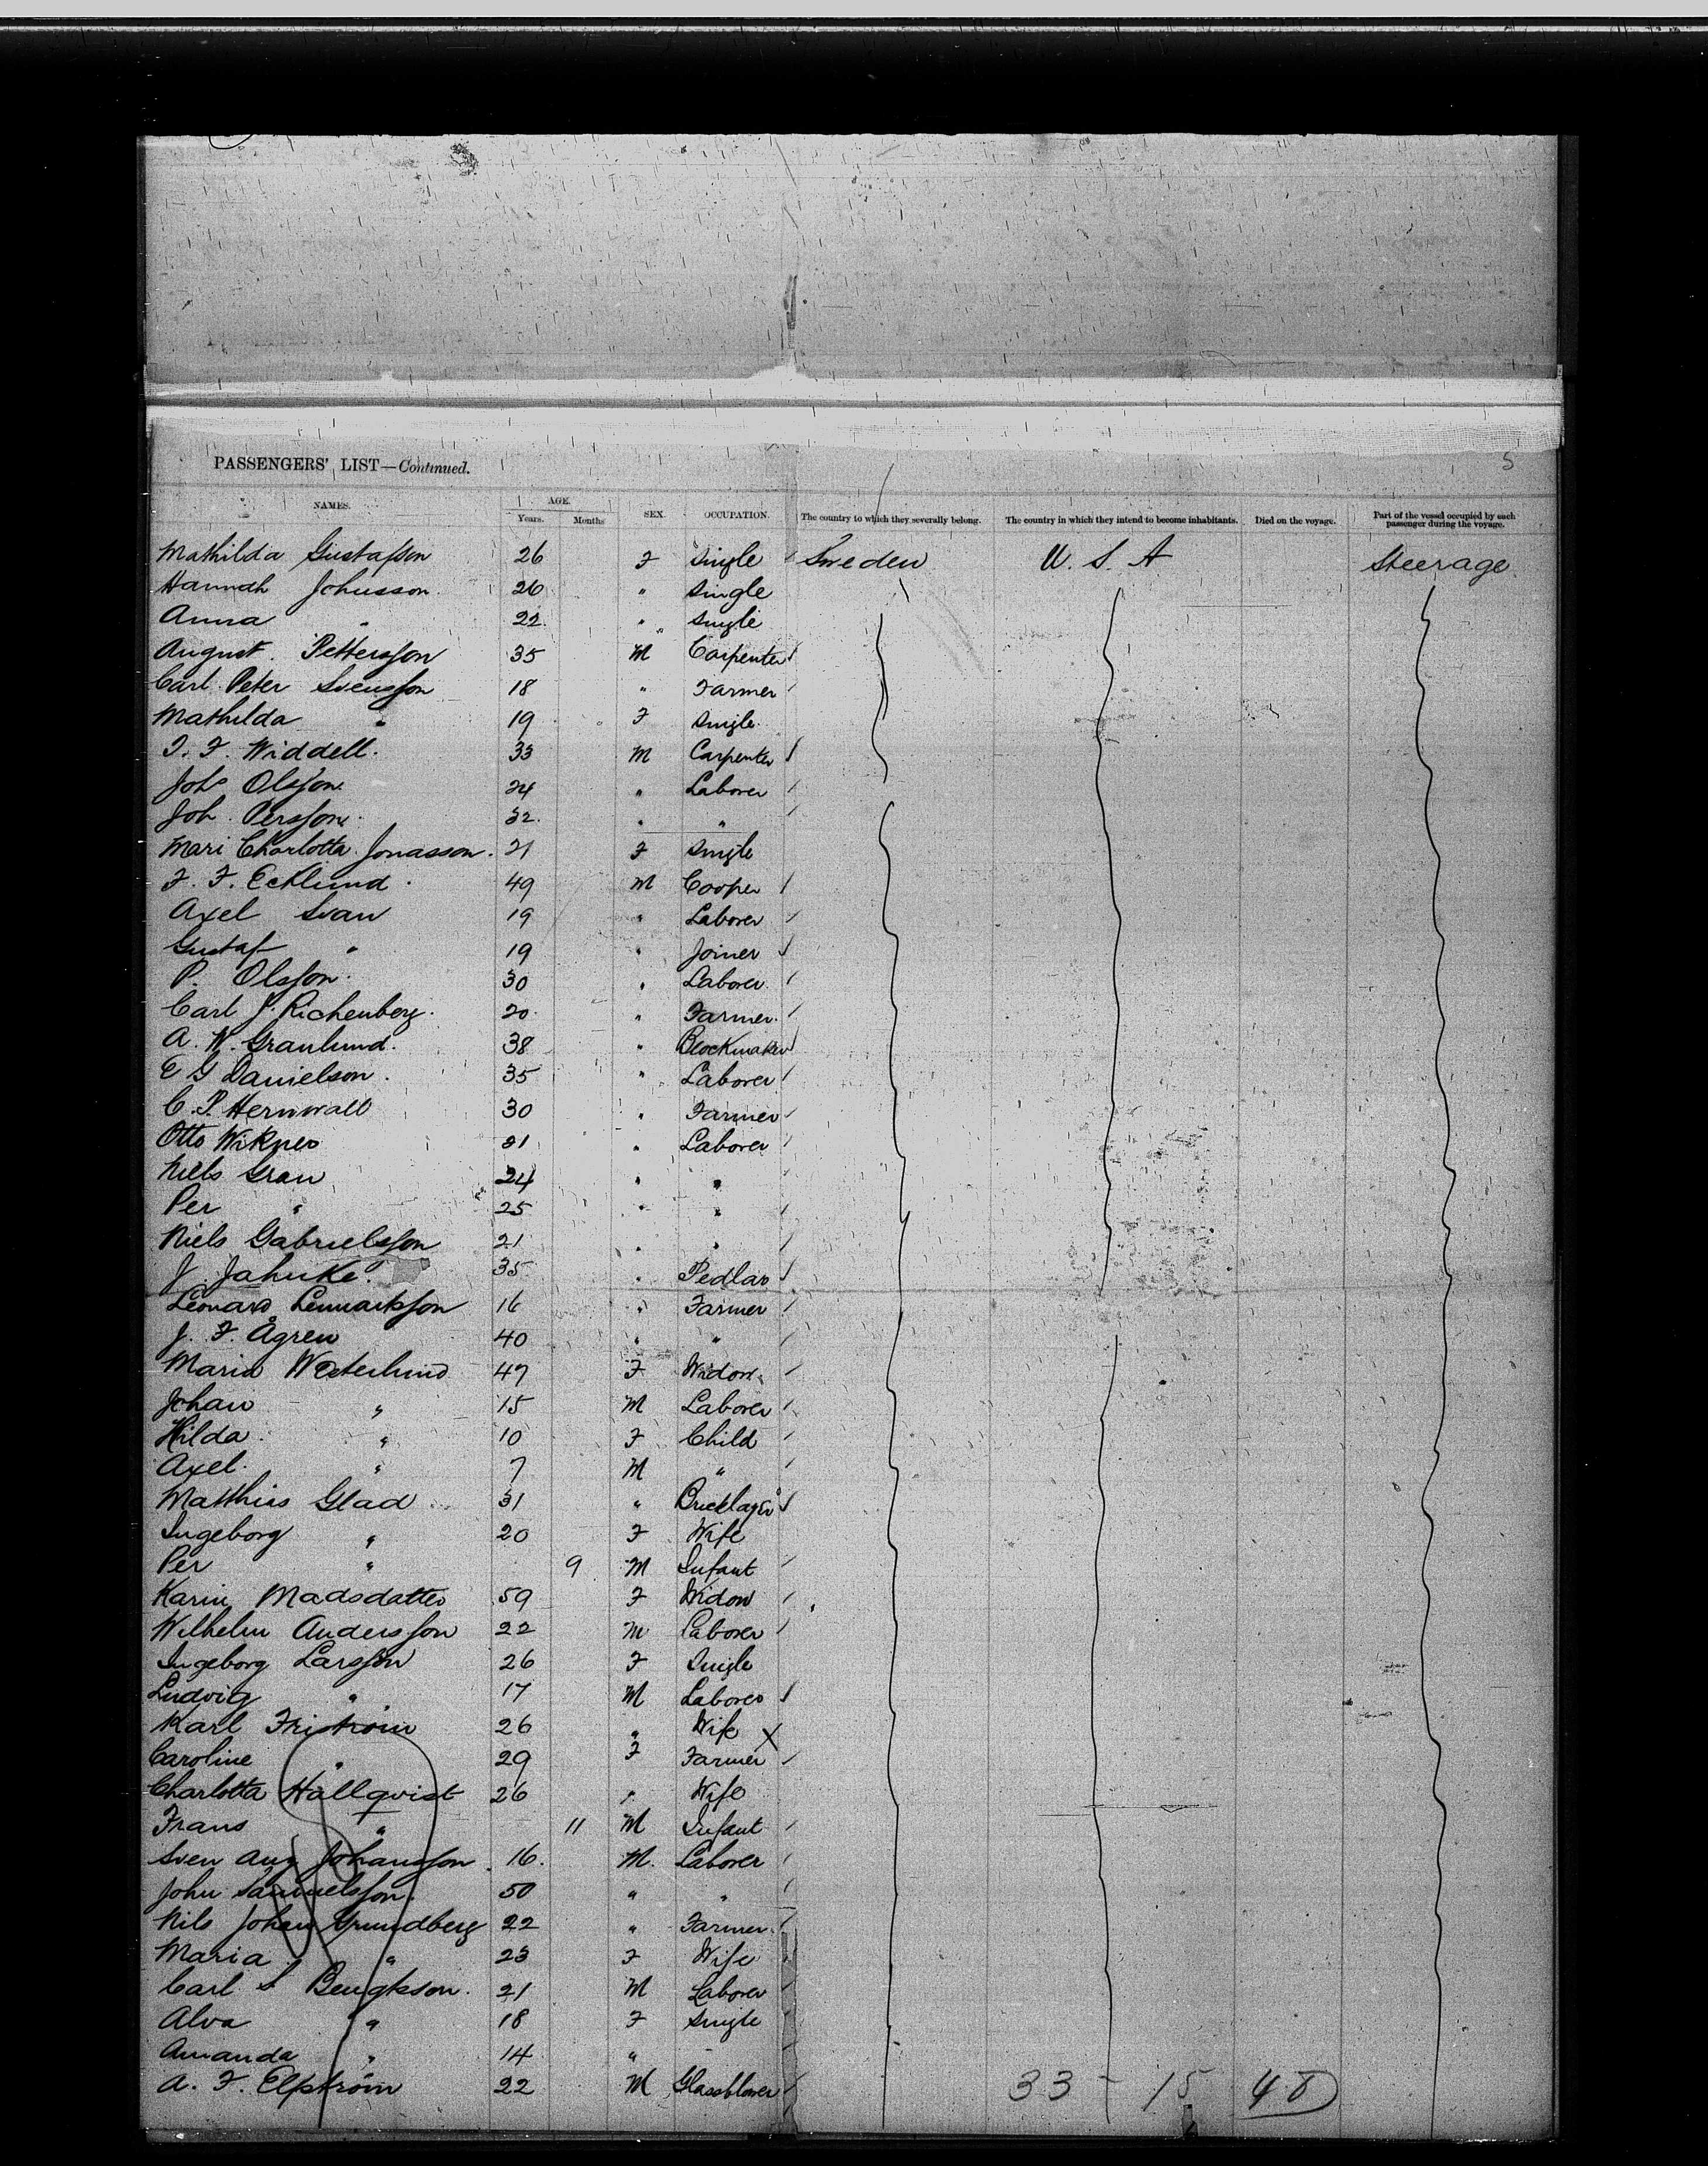 5
PASSENGERS' LIST—Continued.
NAMES. AGE. Years. Months SEX. OCCUPATION. The country to which they severally belong. The country in which they intend to become inhabitants. Died on the voyage. Part of the vessel occupied by each passenger during the voyage.
Mathilda Gustafsson 26 F Single Sweden U. S. A Steerage
Hannah Johnsson 26 " Single
Anna " 22 " Single
August Pettersson 35 M Carpenter
Carl Peter Svensson 18 " Farmer
Mathilda " 19 F Single
Widdell 33 M Carpenter
Joh. Olsson 24 " Laborer
Joh. Persson 32 " "
Mari Charlotta Jonasson 21 F Single
F. F. Ecklund 49 M Cooper
Axel Svan 19 " Laborer
Gustaf " 19 " Joiner
P. Olsson 30 " Laborer
Carl J. Richenberg 20 " Farmer
A. W. Granlund 38 " Blockmaker
E G Danielson 35 " Laborer
C. P. Hernwall 30 " Farmer
Otto Wikner 21 " Laborer
Niels Gran 24 " "
Per " 25 " "
Niels Gabrielsson 21 " "
J. Jahnke 35 " Pedlar
Leonard Lennartsson 16 " Farmer
J. F. Ågren 40 " "
Maria Westerlund 47 F Widow
Johan " 15 M Laborer
Hilda " 10 F Child
Axel " 7 M "
Matthias Glad 31 " Bricklayer
Ingeborg " 20 F Wife
Per " 9 M Infant
Karin Madsdatter 59 F Widow
Wilhelm Andersson 22 M Laborer
Ingeborg Larsson 26 F Single
Ludvig " 17 M Laborer
Karl Friström 26 " Wife X
Caroline " 29 F Farmer
Charlotta Hallqvist 26 " Wife
Frans " 11 M Infant
Sven Aug Johansson 16 M. Laborer
John Samuelsson 50 " "
Nils Johan Grundberg 22 " Farmer
Maria " 23 F Wife
Carl S Bengtsson 21 M Laborer
Alva " 18 F Single
Amanda " 14 "
A. F. Elfström 22 M Glassblower
33 - 15 48